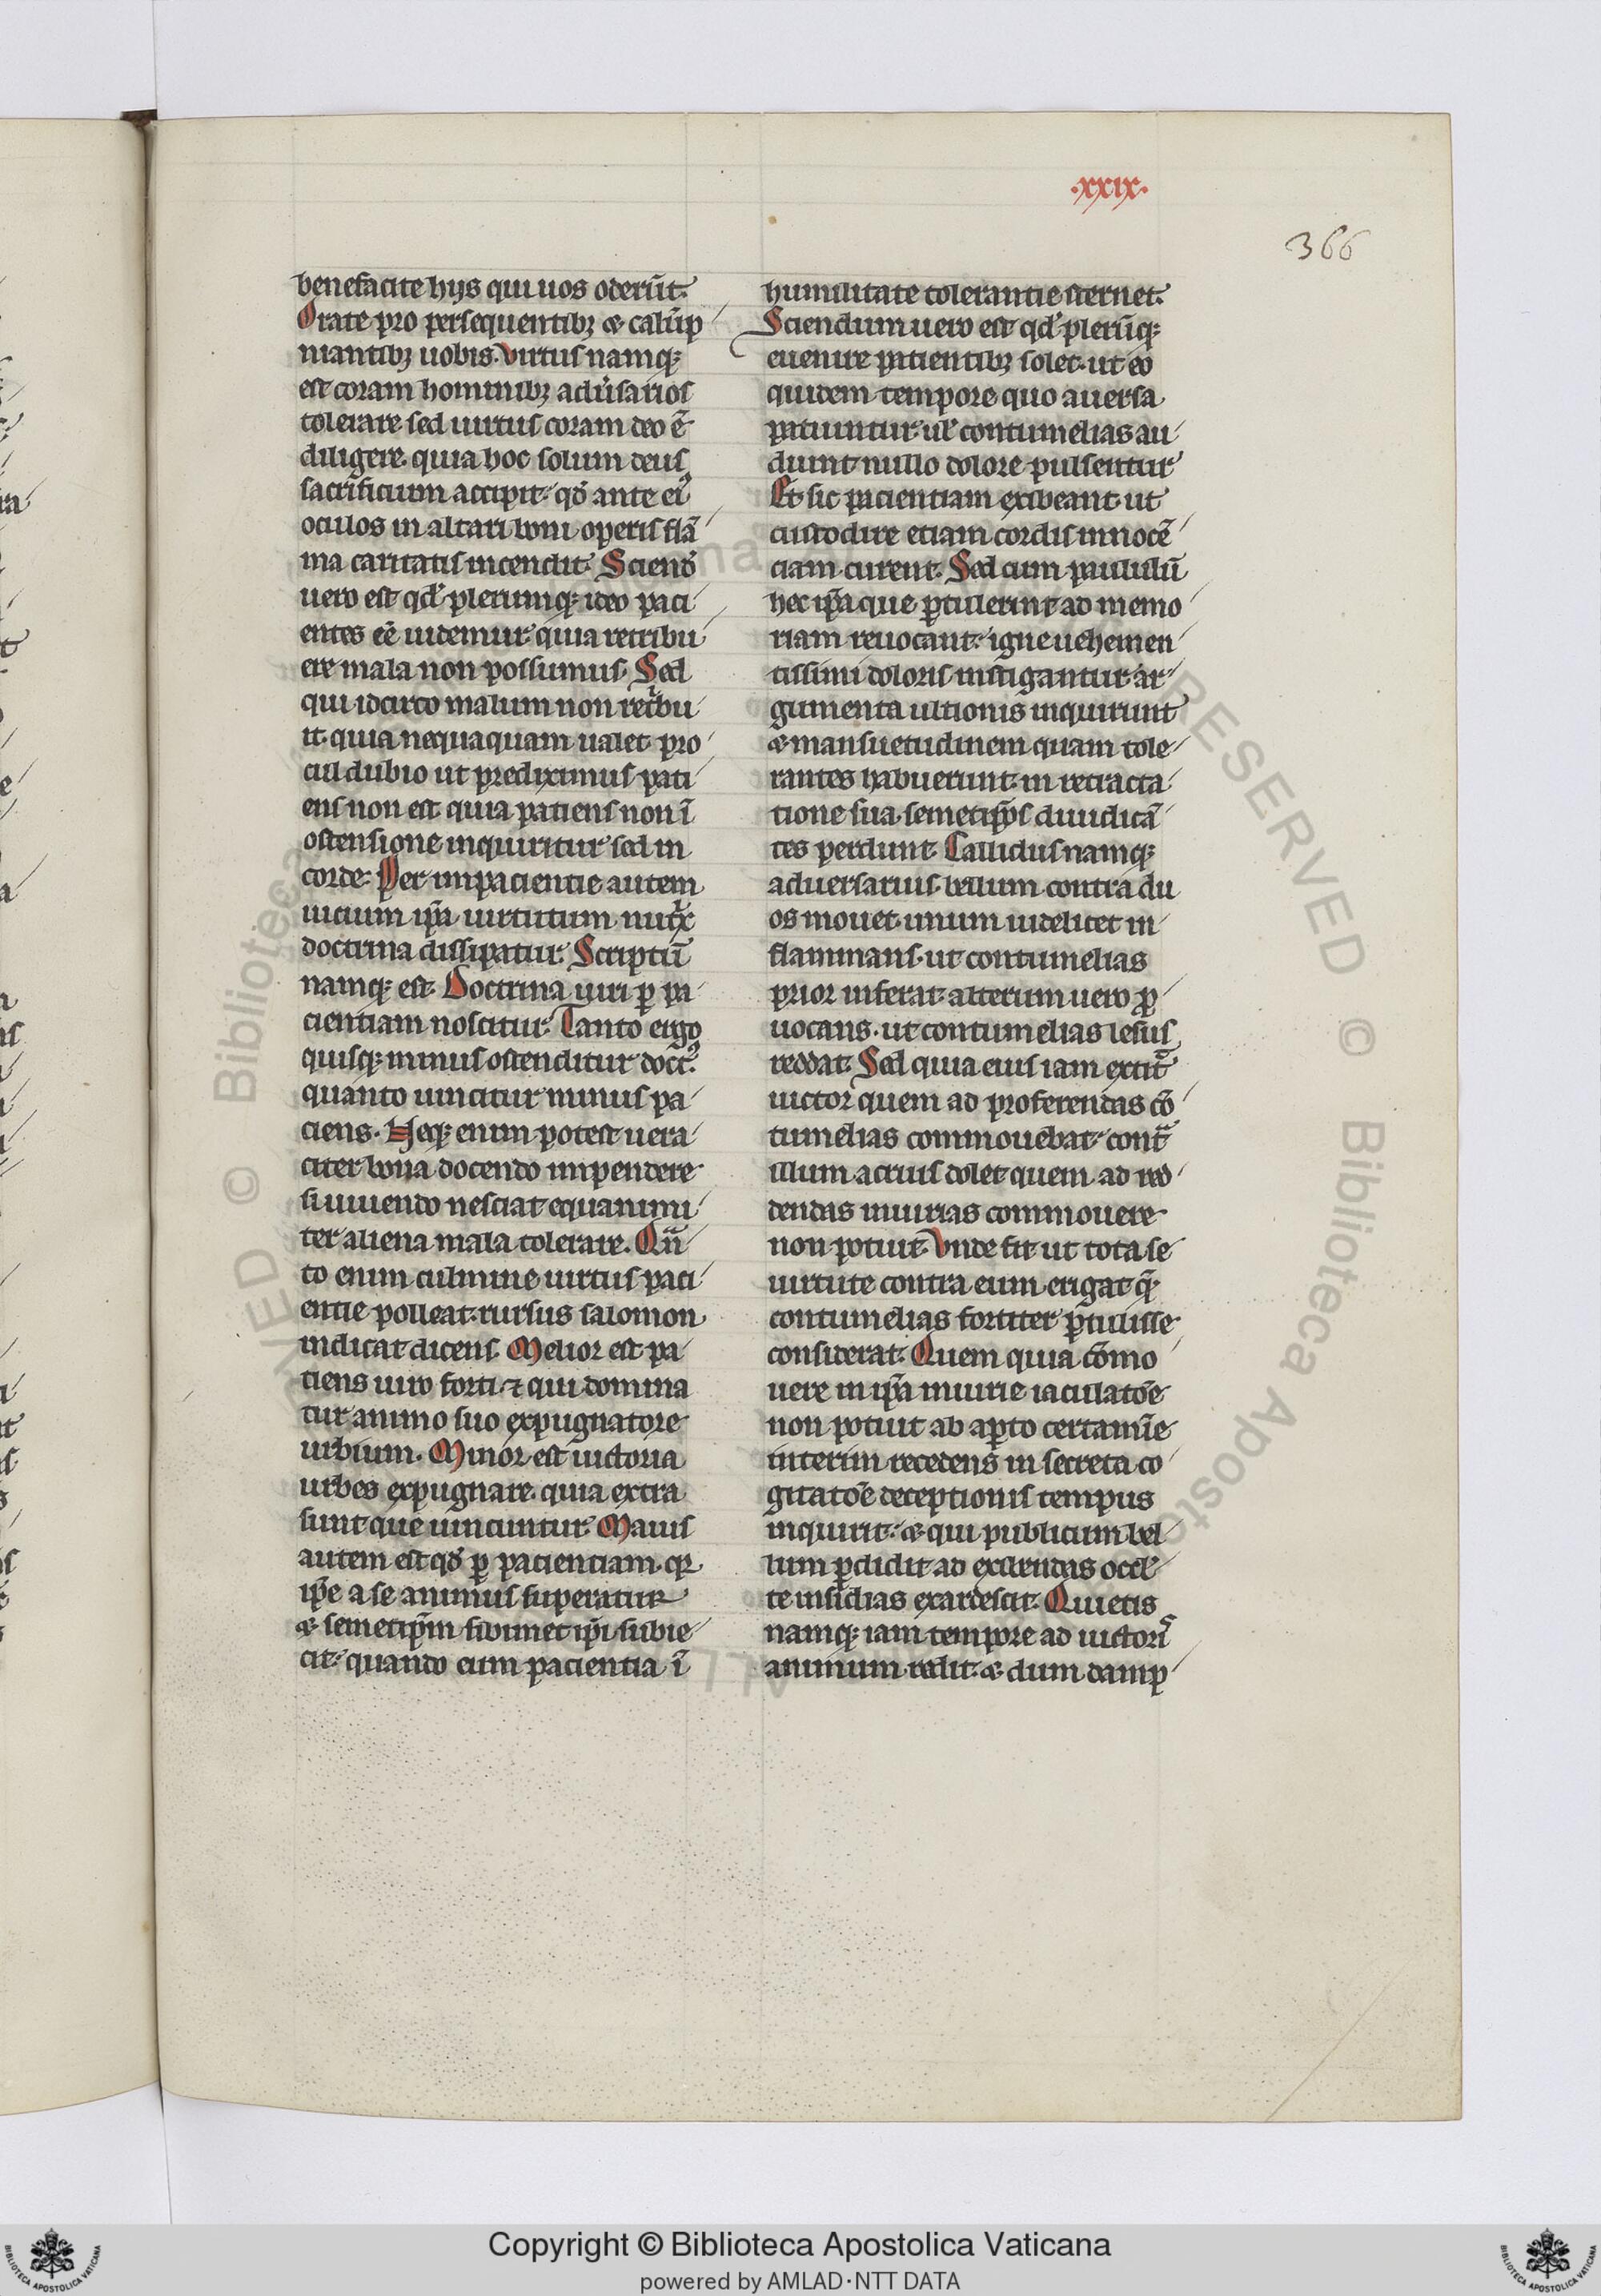 .xxix.
366
benefacite hijs qui uos oderūt.
Orate pro persequentibꝫ ⁊ calūp
niantibꝫ uobis. Virtus namqꝫ
est coram hominibꝫ adu͛sarios
tolerare sed uirtus coram deo ē
diligere. quia hoc solum deus
sacrificium accipit. qd̕ ante eiꝰ
oculos in altari boni operis flā
ma caritatis incendit. Sciend̕
uero est qd̕ plerumqꝫ ideo paci
entes eē uidemur quia retribu
ere mala non possumus. Sed
qui idcirco malum non retͥbu
it quia nequaquam ualet pro
cul dubio ut prediximus pati
ens non est quia patiens non ī
ostensione inquiritur sed in
corde. Per impacientie autem
uicium ip̄a uirtutum nutͥx
doctrina dissipatur. Scriptū
namqꝫ est. Doctrina uiri ꝑ pa
cientiam noscitur. Tanto ergo
quisqꝫ minus ostenditur doctꝰ
quanto uincitur minus pa
ciens. Neqꝫ enim potest uera
citer bona docendo impendere
si uiuendo nesciat equanimi
ter aliena mala tolerare. Qn̄
to enim culmine uirtus paci
entie polleat. rursus salomon
indicat dicens. Melior est pa
tiens uiro forti. ⁊ qui domina
tur animo suo expugnatore
urbium. Minor est uictoria
urbes expugnare. quia extra
sunt que uincuntur. Maius
autem est qd̕ ꝑ pacientiam. qꝛ
ip̄e a se animus superatur
⁊ semetip̄m sibimet ip̄i subie
cit. quando eum pacientia ī
humilitate tolerantie sternet.
Sciendum uero est qd̕ plerūqꝫ
euenire patientibꝫ solet. ut eo
quidem tempore quo auersa
patiuntur. ul̕ contumelias au
diunt nullo dolore pulsentur
Et sic pacientiam exibeant ut
custodire etiam cordis innocē
ciam curent. Sed cum paululū
hec ip̄a que ꝑtulerint ad memo
riam reuocant. igne uehemen
tissimi doloris instigantur. ar
gumenta ultionis inquirunt
⁊ mansuetudinem quam tole
rantes habuerunt. in retracta
tione sua. semetip̄os diiudicā
tes perdunt. Callidus namqꝫ
aduersarius. bellum contra du
os mouet. unum uidelicet in
flammans. ut contumelias
prior inferat. alterum uero ꝓ
uocans. ut contumelias lesus
reddat. Sed quia eius iam extit͛
uictor quem ad proferendas cō
tumelias commouebat. contᷓ
illum acrius dolet quem ad red
dendas iniurias commouere
non potuit. Vnde fit ut tota se
uirtute contra eum erigat q̄
contumelias fortiter ꝑtulisse
considerat. Quem quia cōmo
uere in ip̄a iniurie iaculatōe
non potuit ab aꝑto certamīe
interim recedens in secreta co
gitatōe deceptionis tempus
inquirit. ⁊ qui publicum bel
lum ꝑdidit ad exibendas occl̕
te insidias exardescit. Quietis
namqꝫ iam tempore ad uictor̄
animum redit. ⁊ dum damp
Copyright © Biblioteca Apostolica Vaticana
powered by AMLAD·NTT DATA